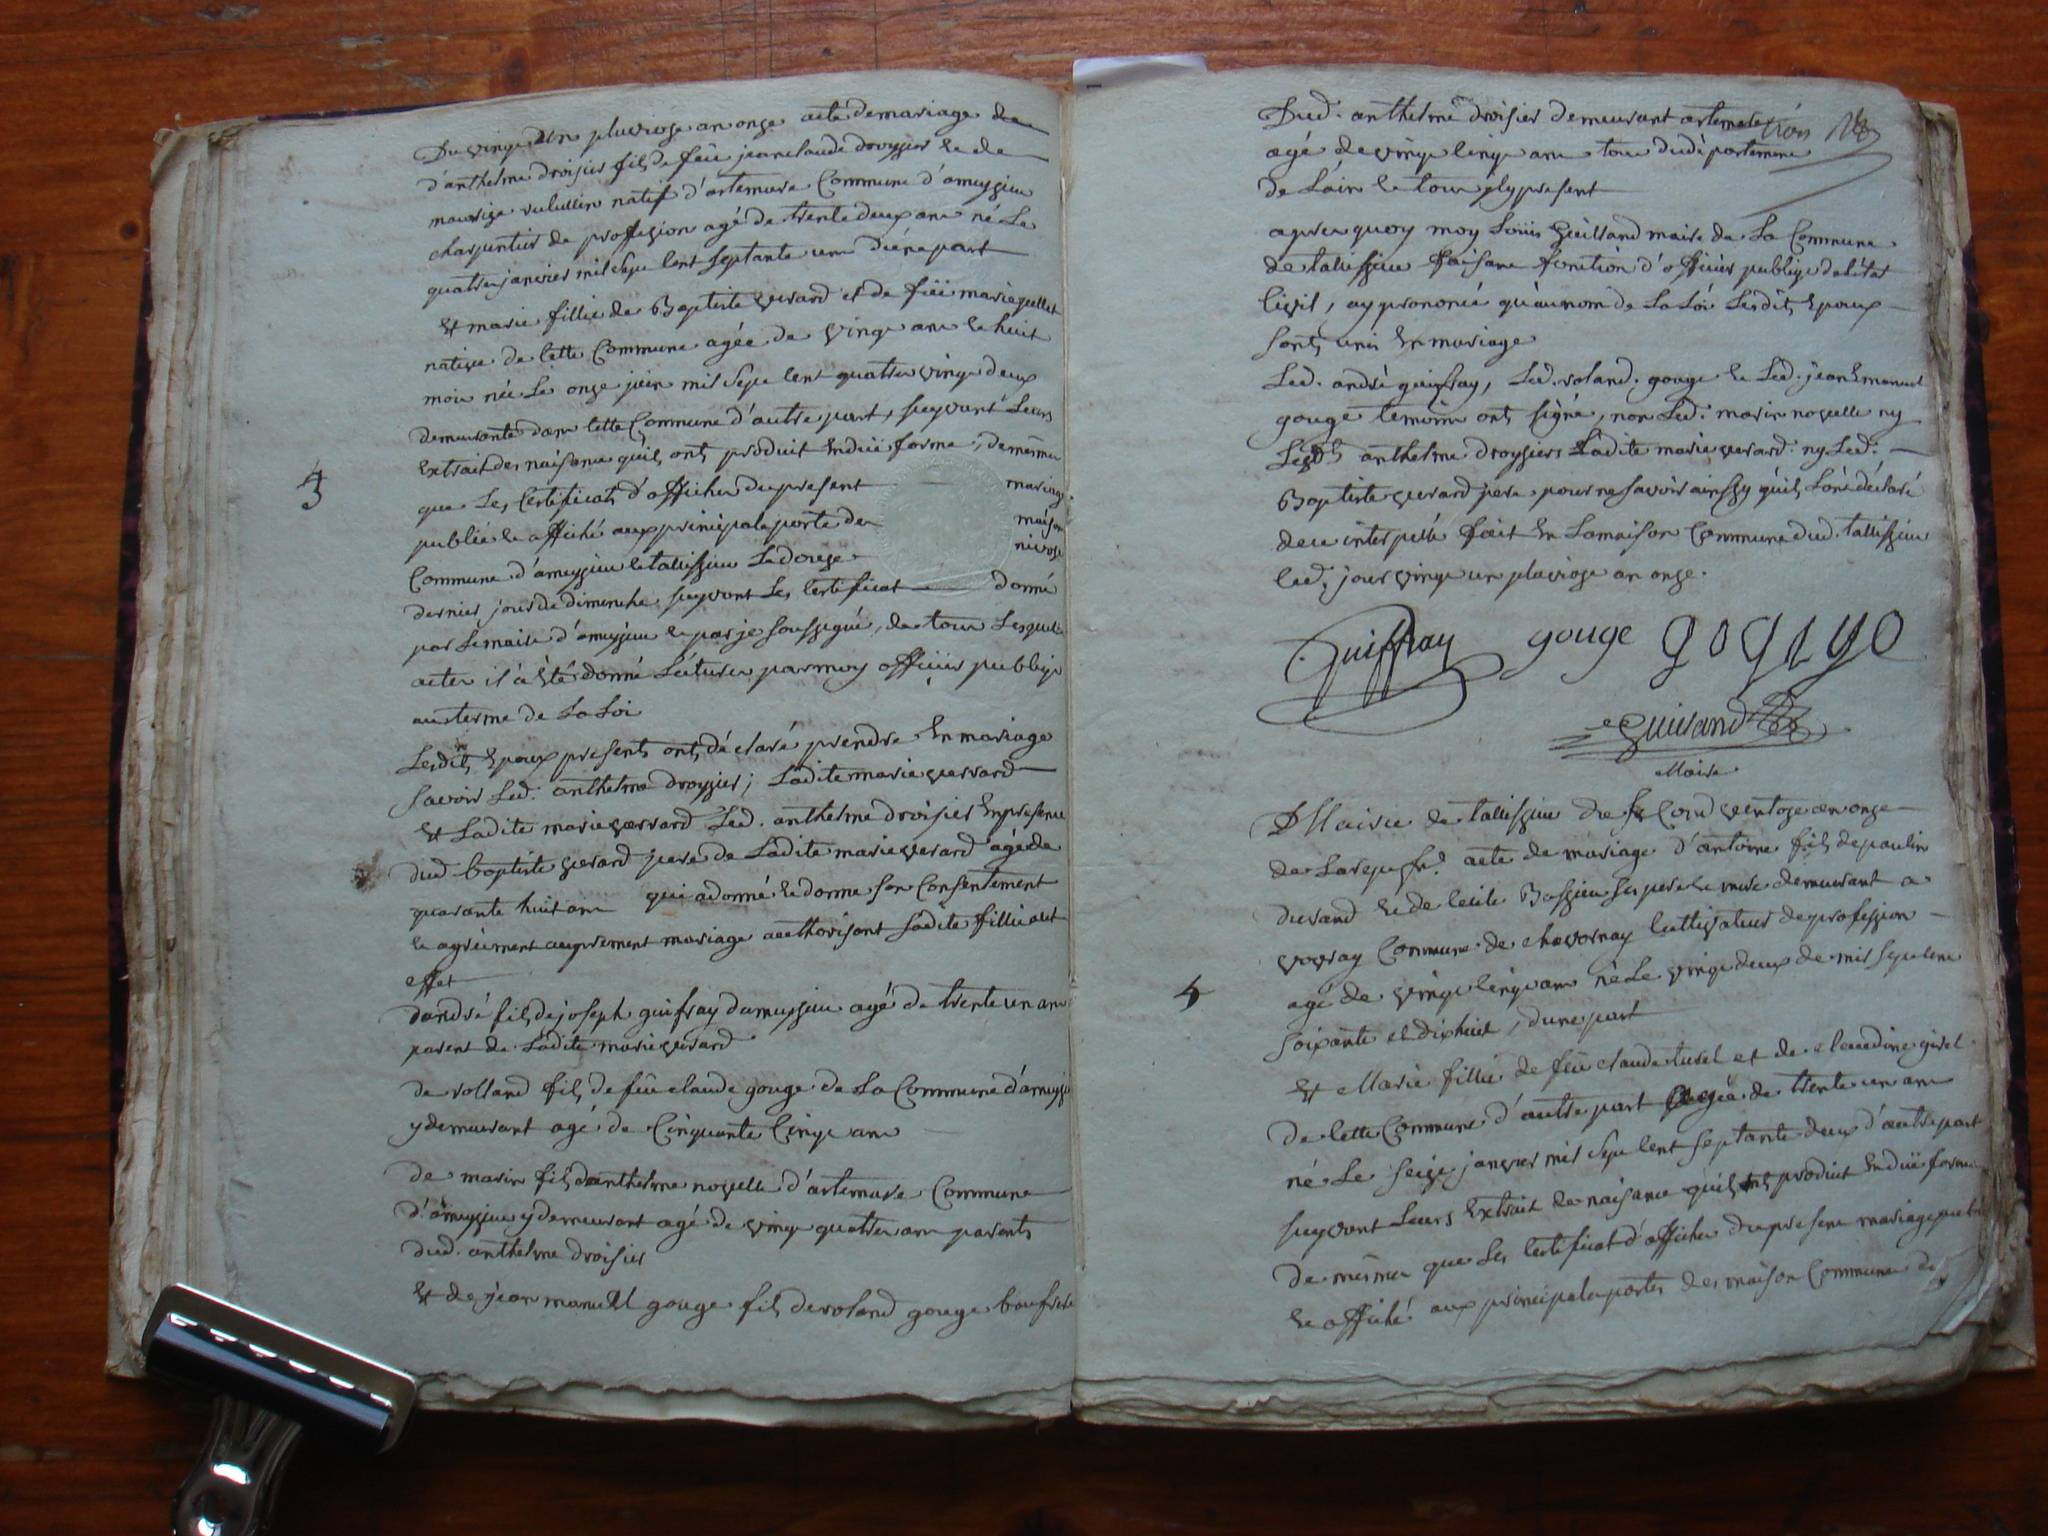 Du vingt un pluviose an onze acte de mariage de
d'anthelme droisier fils de feüe jean claude droysier et de
natif d'artemare Commune d'ameyzieu
charpentier de profession agé de trente deux ans né Le
quatre janvier mil sept cent septante un d'une part
et marie fillie de Baptiste verard et de feüe marie pellet
native de cette Commune agée de vingt ans et huit
mois née Le onze juin mil sept cent quatre vingt deux
demeurante dans cette Commune d'autre part, suyvant Leurs
Extrait des naisance quils ont produit en düe forme, de mesme
que Les Certificats d'affiches du present mariage
publié et affiché aux principale porte des maison
Commune d'ameyzieu et talissieu Le douze nivose
dernier jour de dimenche, suyvant Les Certificat donné
par Le maire d'ameyzieu et par je soussigné, de tous Lesquels
actes il à été donné Lecture par moy officier publiqe
au terme de La Loi
Lesdits Epoux presents ont déclaré prendre En mariage
savoir Led. anthelme droysier; Ladite marie verrard
et Ladite marie verrard Led. anthelme droisier En presence
dud baptiste verard pere de Ladite marie verard agé de
quarante huit ans qui a donné et donne son Consentement
et agrément au present mariage authorisant Sadite fillie a cet
effet
d'andré fils de joseph guifray d'ameyzieu agé de trente un ans
parent de Ladite marie verard
de rolland fils de feüe claude gouge de La Commune d'ameyzi
y demeurant agé de Cinquante Cinq ans
de marin fils d'anthelme novelle d'artemare Commune
d'ameyzieu y demeurant agé de vingt quatre ans parents
dud. anthelme droisier
et de jean manuel gouge fils de roland gouge beaufrere
3
Dud. anthelme droisier demeurant artemare
agé de vingt cinq ans tous du département
de L'ain et tous icy present
apres quoy moy Loüis Guillard maire de La Commune
de talissieu faisant fonction d'officier publique de L'etat
Civil, ay prononcé qu'au nom de La Loi Lesdits Epoux
sont unis En mariage
Led. andré guifray, Led. roland. gouge et Led. jean Emanuel
gouge temoins ont signé, non Led. marin novelle ny
Led. anthelme droysiers Ladite marie verard. ny Led.
Baptiste verard pere pour ne savoir ainssy qu'ils L'ont déclaré
de ce interpellé fait En La maison Commune dud. talissieu
Led. jour vingt un pluviose an onze.
Guiffray gouge gougo
Guirand
Maire
Mairie de talissieu du second ventose an onze
de La repu fr.e acte de mariage d'antoine fils de paulin
durand et de Bossieu ses pere et mere demeurant a
vovray Commune de chavornay Cultivateur de profession
agé de vingt cinq ans né Le vingt deux de mil sept cent
soixante et dixhuit, d'une part
et Marie fillie de feüe claude et de claudine
de cette Commune d'autre part agée de trente un ans
né Le seize janvier mil sept cent septante deux d'autre part
suyvant Leurs Extrait de naisance quils ont produit En düe forme
De mesme que Les Certificat d'affiches du present mariage publié
et affiché aux principale portes des maison Commune de
4